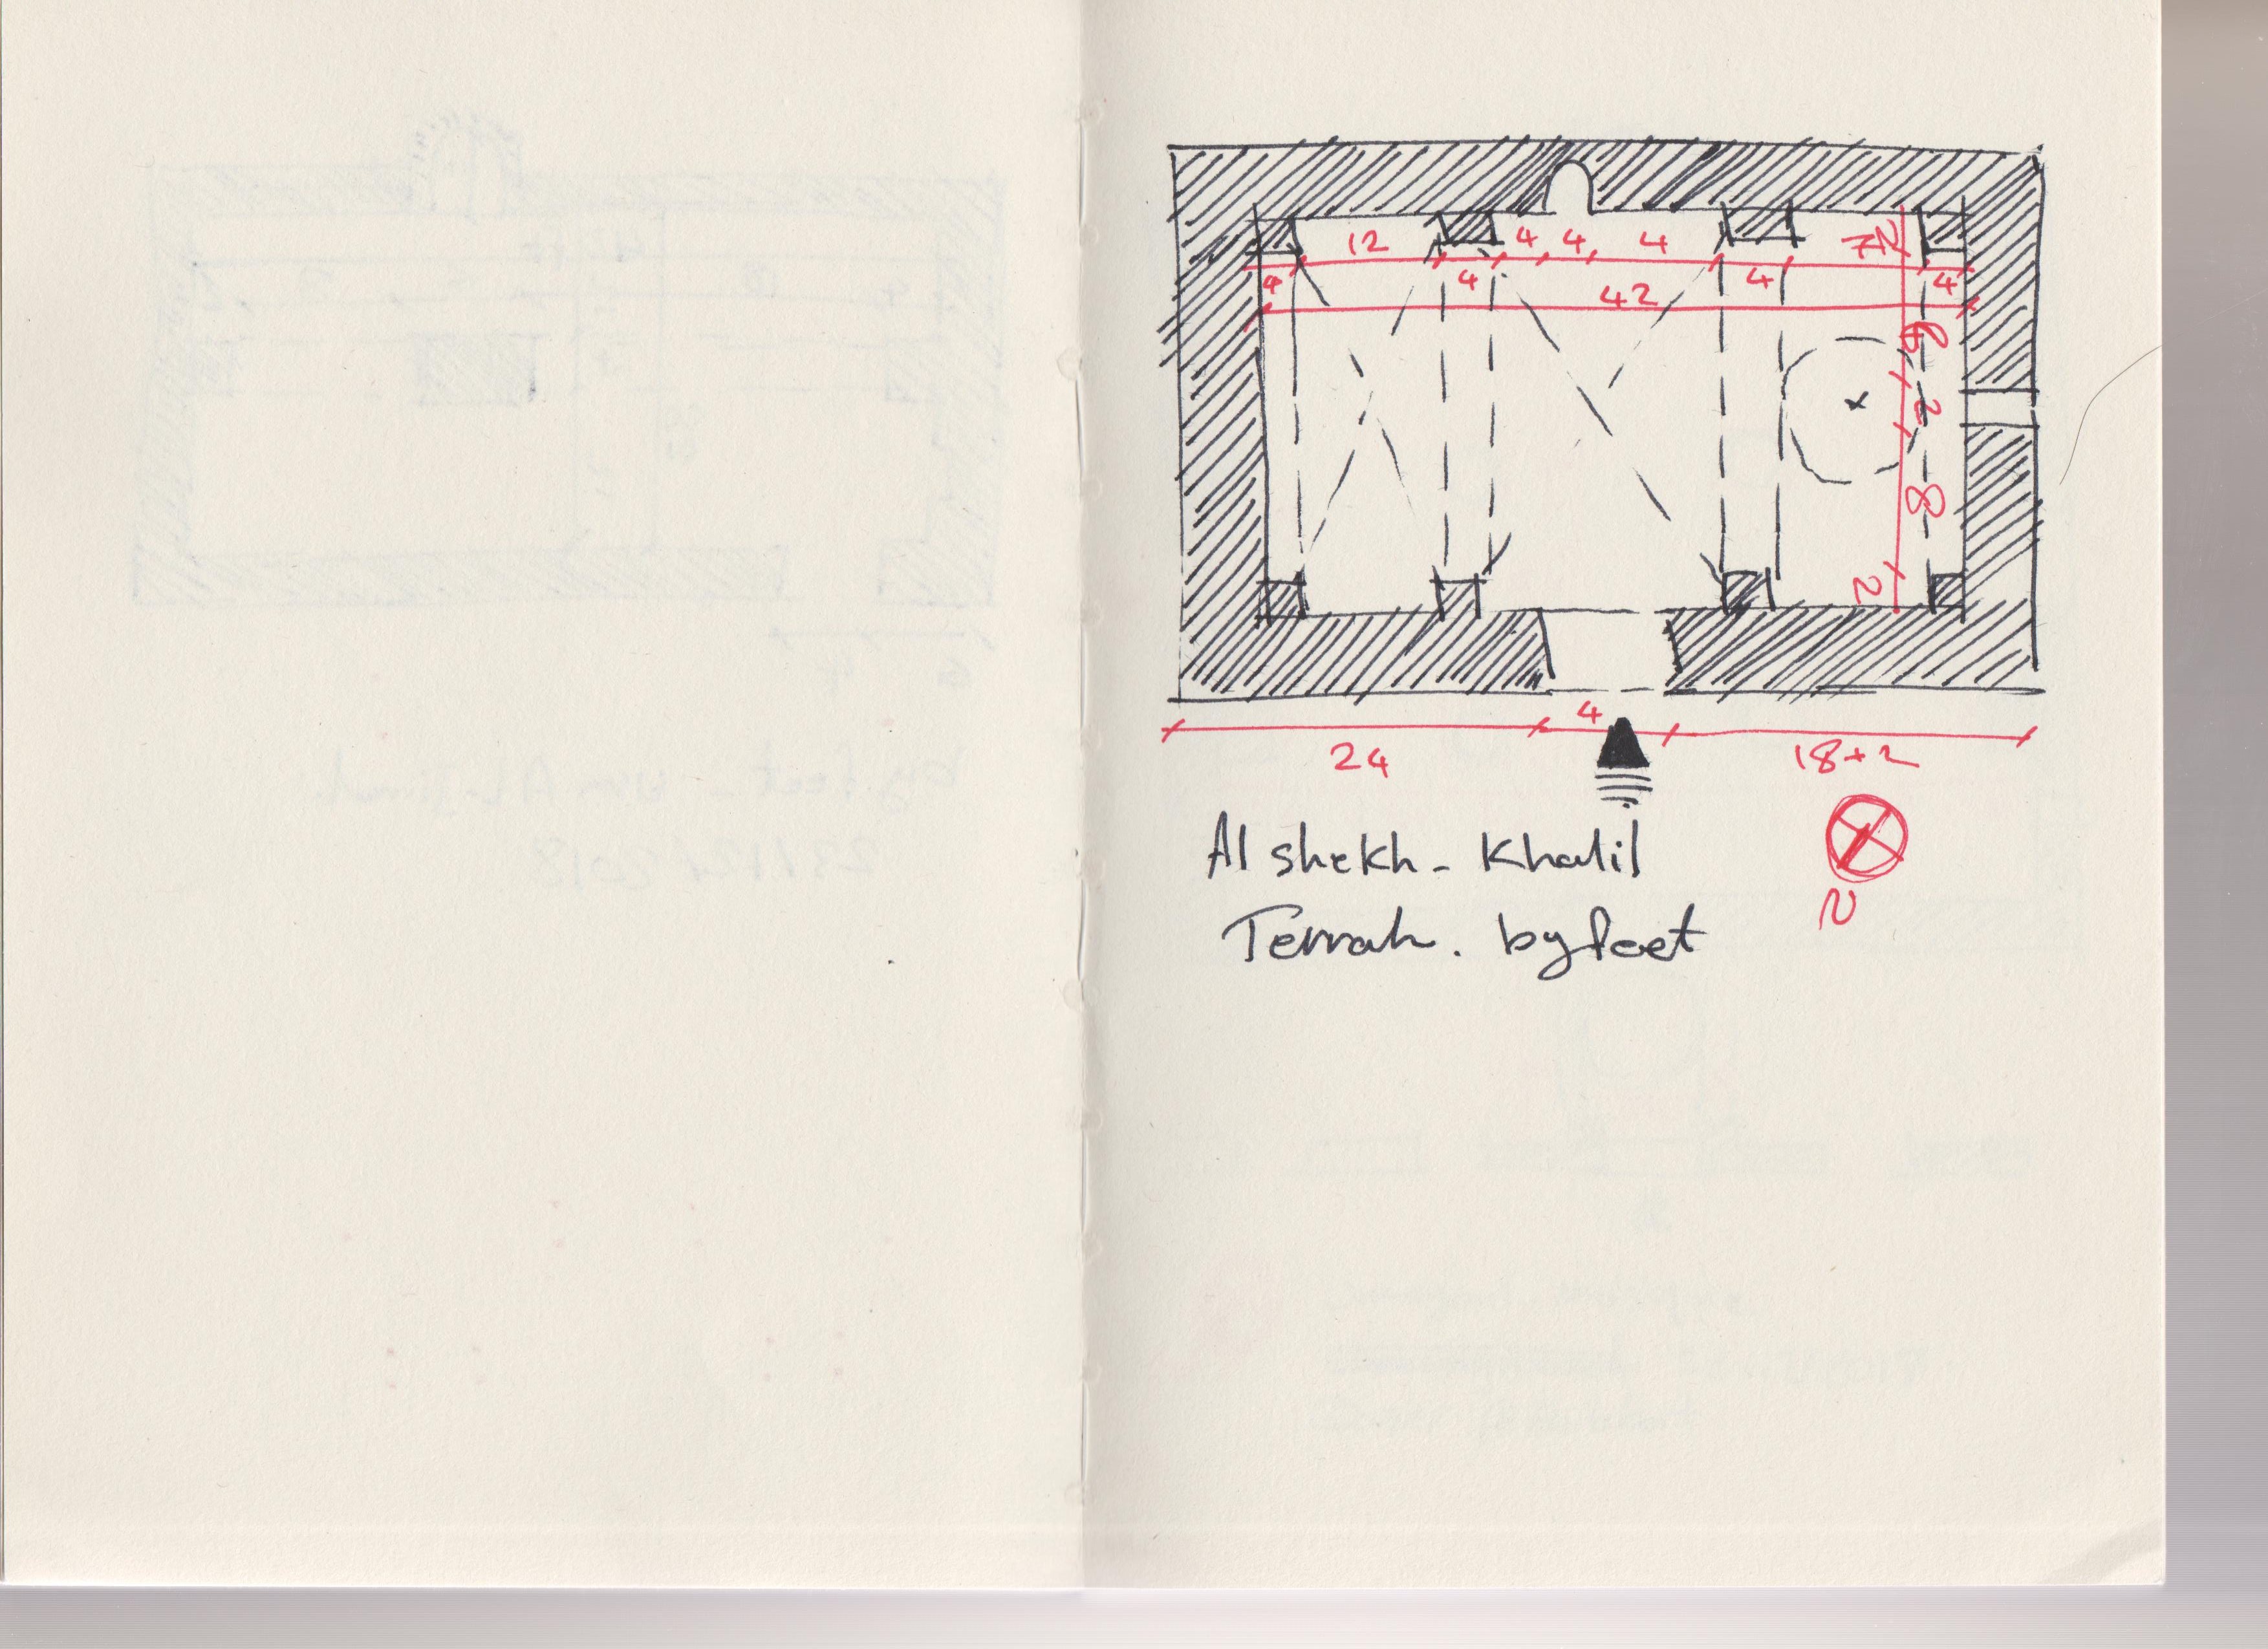 12 4 4 4
4 4 4 4
42
6
2
8
2
4
24 18+2
Al shekh - Khalil
Terrah. by feet
N